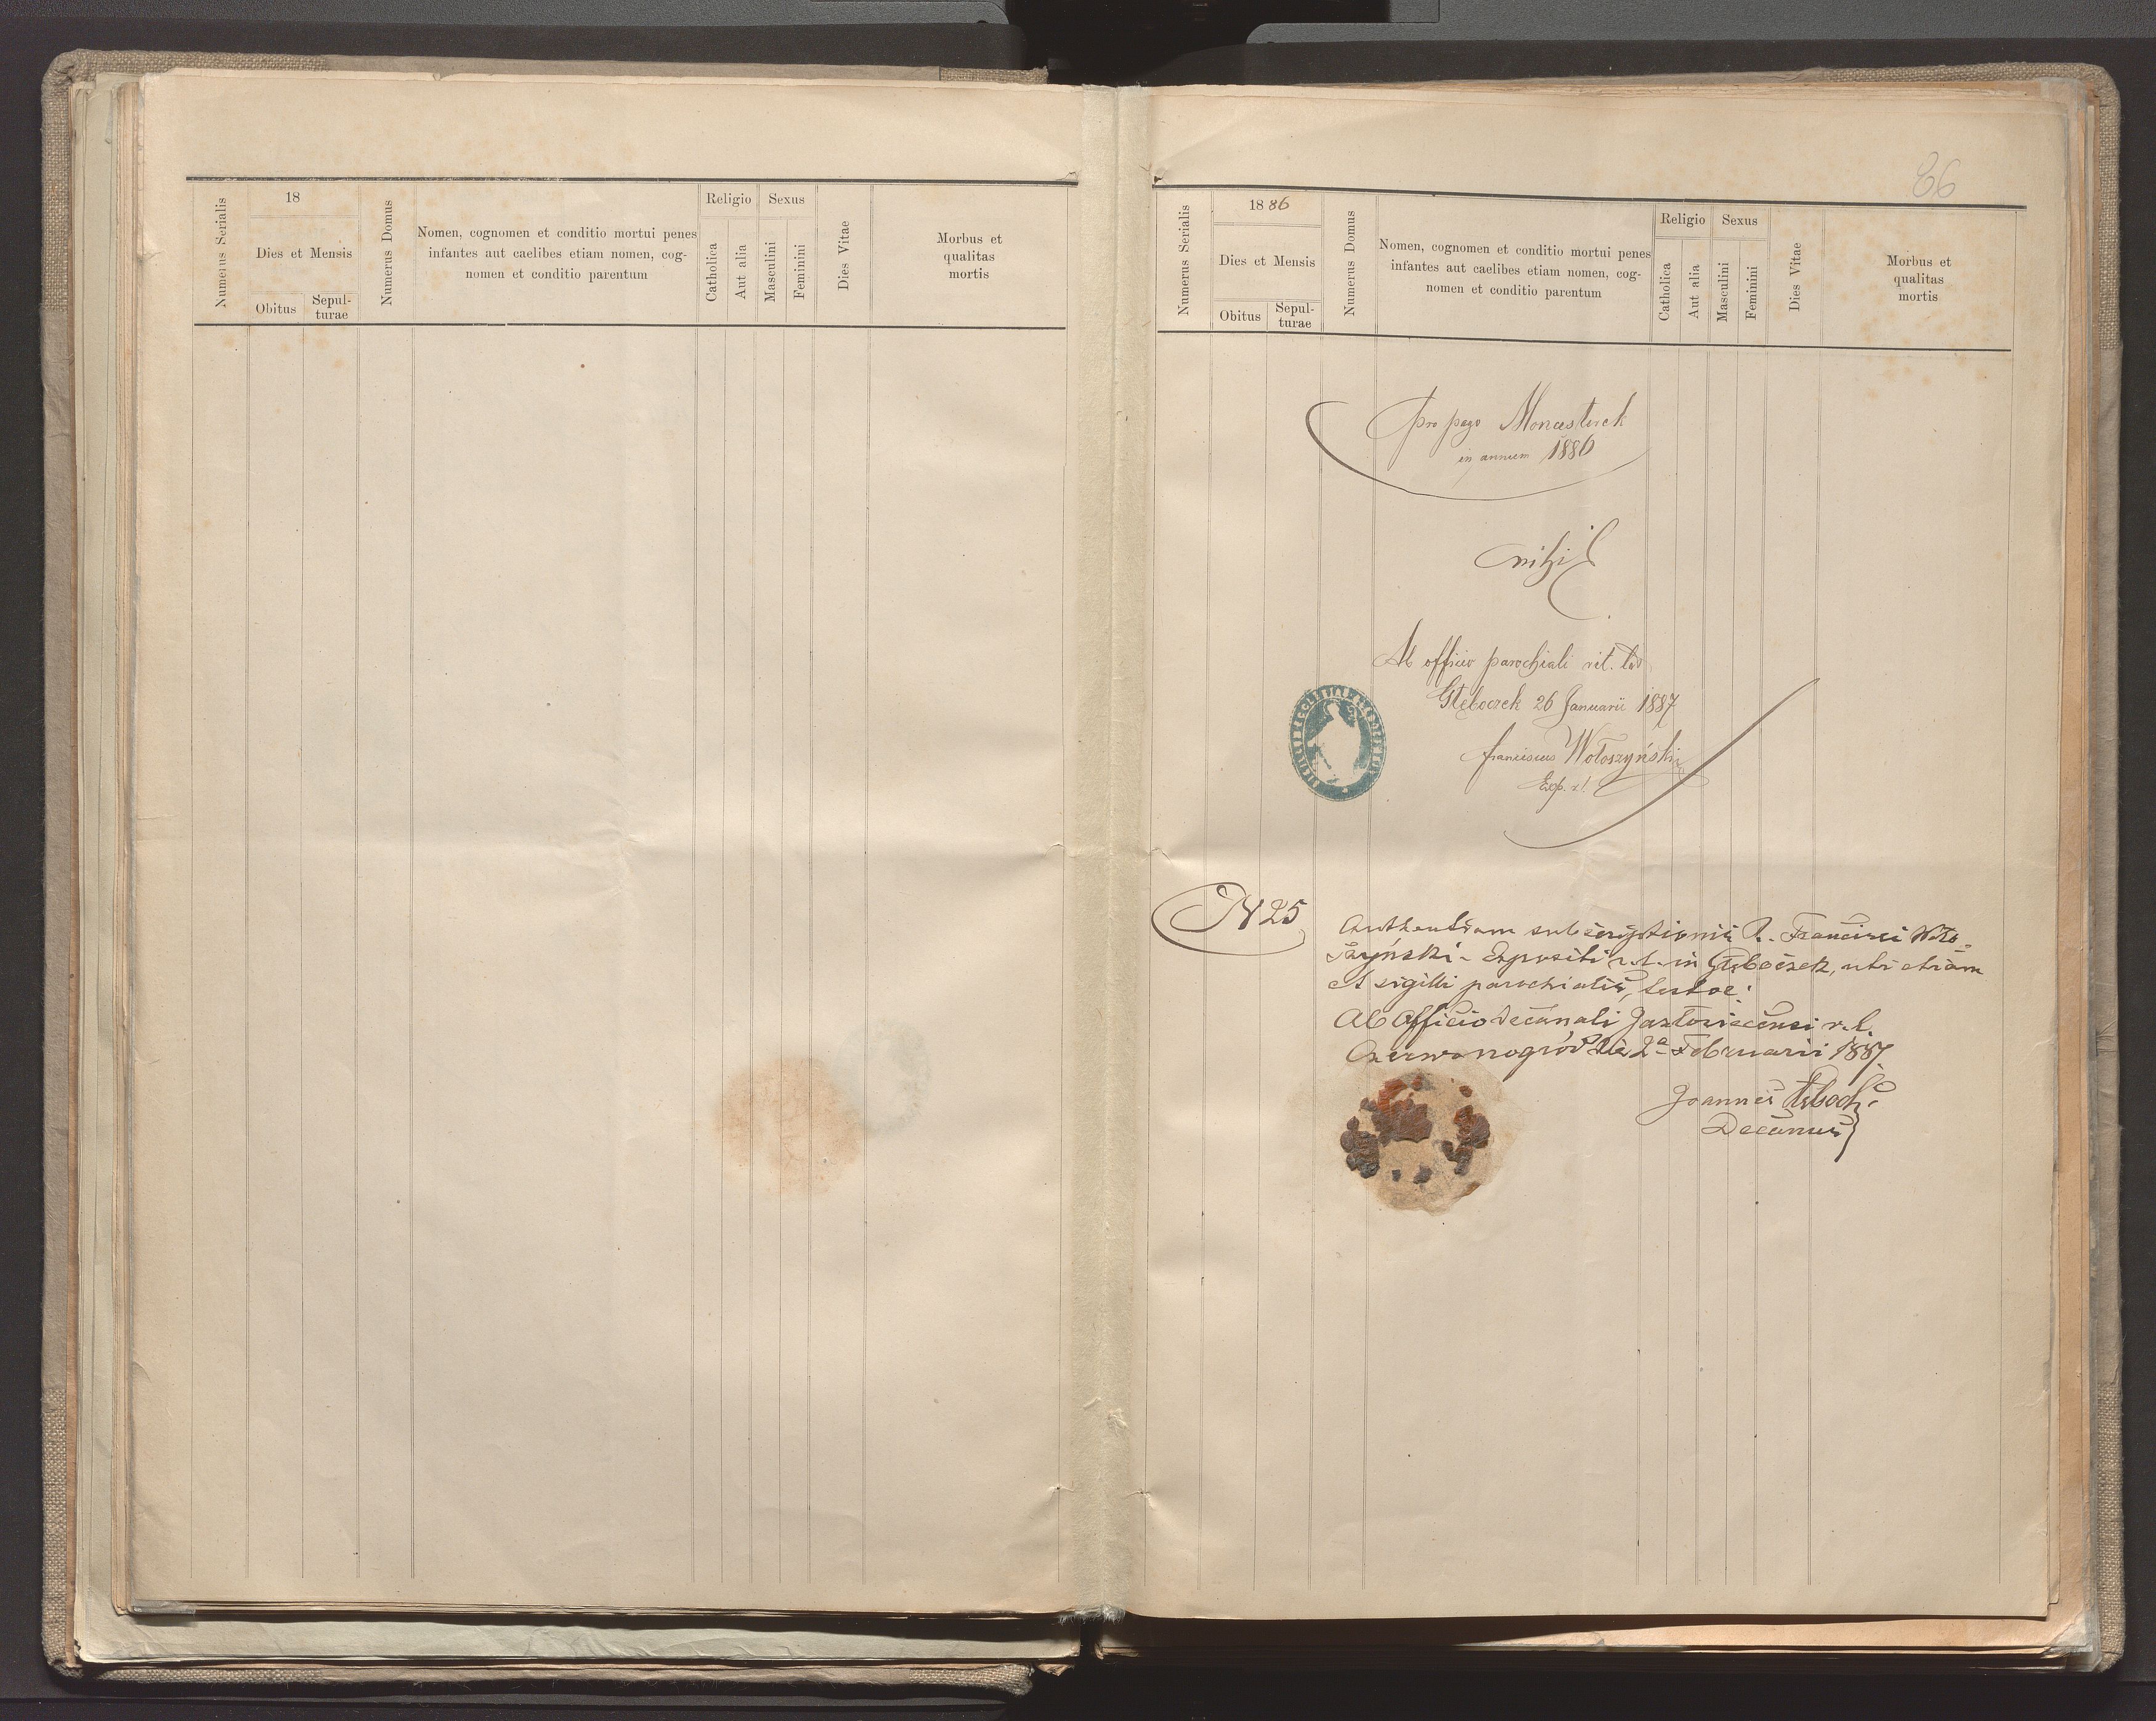 18
Numerus Serialis
Dies et Mensis
Obitus
Sepul-
turae
Numerus Domus
Nomen, cognomen et conditio mortui penes
infantes aut caelibes etiam nomen, cog-
nomen et conditio parentum
Religio
Catholica
Aut alia
Sexus
Masculini
Feminini
Dies Vitae
Morbus et
qualitas
mortis
86
1886
Numerus Serialis
Dies et Mensis
Obitus
Sepul-
turae
Numerus Domus
Nomen, cognomen et conditio mortui penes
infantes aut caelibes etiam nomen, cog-
nomen et conditio parentum
Religio
Catholica
Aut alia
Sexus
Masculini
Feminini
Dies Vitae
Morbus et
qualitas
mortis
pro pago Monasterek
in annum 1886
nihil
Ab officio parochiali rit. lat
Głęboczek 26 Januarii 1887
Franciscus Wołoszyński
Exp. r.l.
N 25
Authentiam subscriptionis R. Francisci Woło-
szyński - Expositi r.l. in Głęboczek, uti etiam
et sigilli parochialis, testor:
Ab Officio Decanali Jazłoviecensi r.l.
Czerwonogród die 2a Februarii 1887
Joannes
Decanus